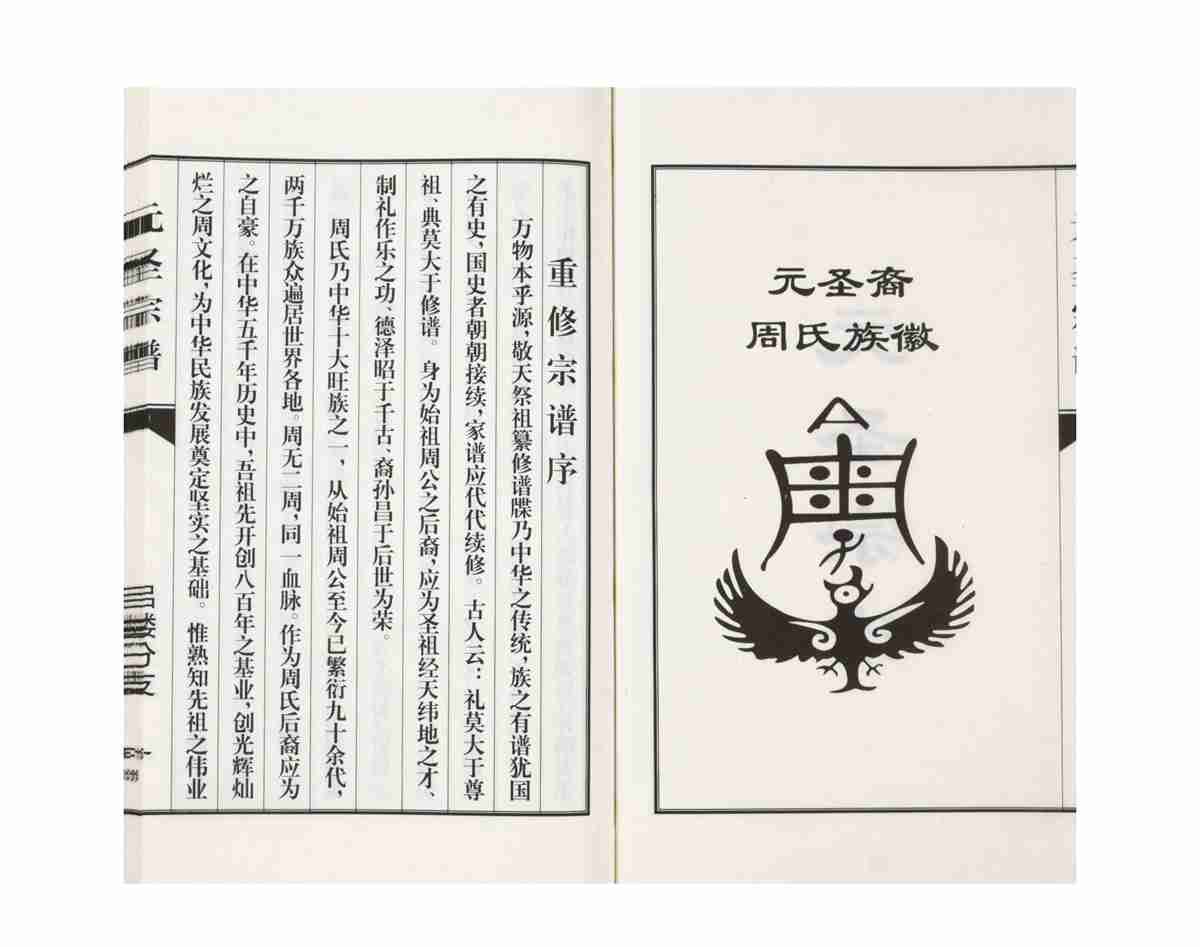 元圣裔
周氏族徽
重修宗谱序
万物本乎源，敬天祭祖纂修谱牒乃中华之传统，族之有谱犹国
之有史，国史者朝朝接续，家谱应代代续修。古人云：礼莫大于尊
祖、典莫大于修谱。身为始祖周公之后裔，应为圣祖经天纬地之才、
制礼作乐之功、德泽昭于千古、裔孙昌于后世为荣。
周氏乃中华十大旺族之一，从始祖周公至今已繁衍九十余代，
两千万族众遍居世界各地。周无二周，同一血脉。作为周氏后裔应为
之自豪。在中华五千年历史中，吾祖先开创八百年之基业，创光辉灿
烂之周文化，为中华民族发展奠定坚实之基础。惟熟知先祖之伟业
元圣宗谱
吕楼分支